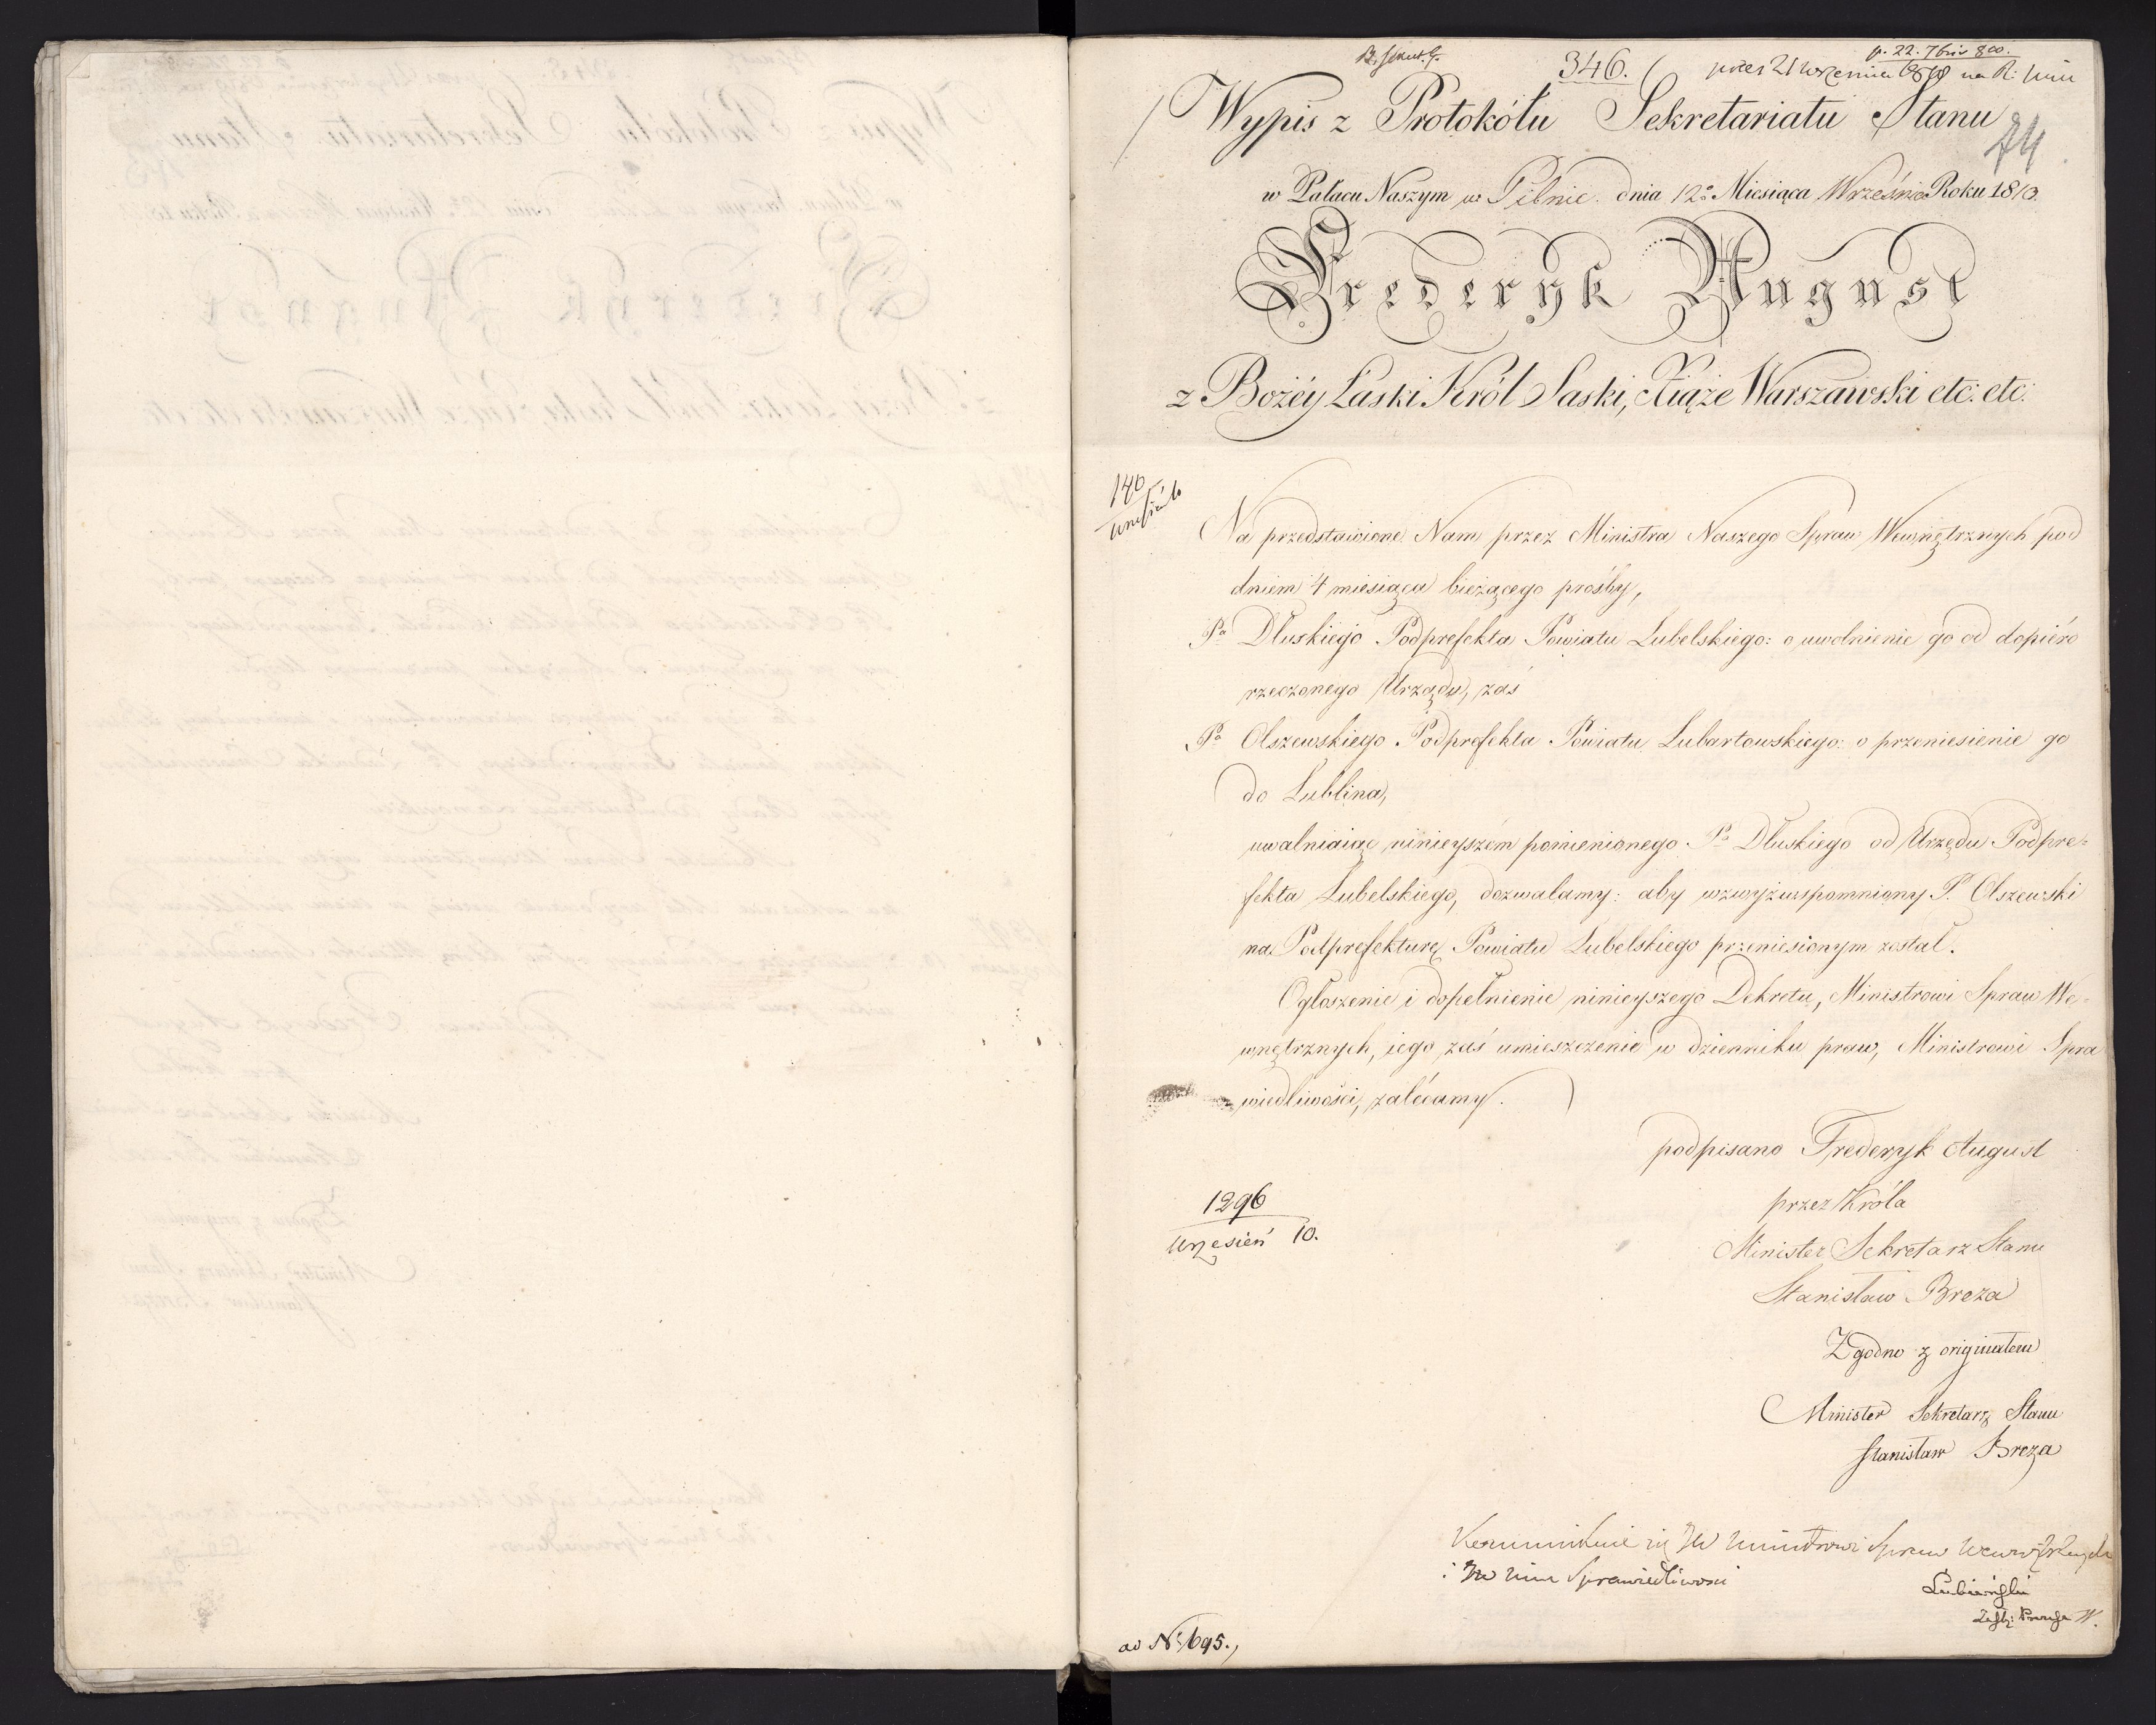 346.
p. 22. 7bris 810.
74
Wypis z Protokółu Sekretariatu Stanu
w Pałacu Naszym w Pilnic. dnia 12º Miesiąca Września Roku 1810.
Frederyk August
z Bożéy Łaski Król Saski, Xiąże Warszawski etc: etc:
140
wrzesień
Na przedstawione Nam przez Ministra Naszego Spraw Wewnętrznych pod
dniem 4 miesiąca bieżącego prośby,
Pª Dłuskiego Podprefekta Powiatu Lubelskiego: o uwolnienie go od dopiéro
rzeczonego Urzędu, zaś
Pª Olszewskiego Podprefekta Powiatu Lubartowskiego: o przeniesienie go
do Lublina,
uwalniaiąc ninieyszém pomienionego Pª Dłuskiego od Urzędu Podpre=
fekta Lubelskiego, dozwalamy: aby wzwyżwspomniony P. Olszewski
na Podprefekturę Powiatu Lubelskiego przeniesionym został.
Ogłoszenie i dopełnienie ninieyszego Dekretu, Ministrowi Spraw We=
wnętrznych, iego zaś umieszczenie w dzienniku praw, Ministrowi Spra
wiedliwości, zalécamy.
podpisano Frederyk August
przez Króla
Minister Sekretarz Stanu
Stanisław Breza
1296
Wrzesień 10.
Zgodno z originałem
Minister Sekretarz Stanu
Stanisław Breza
Kommunikuie się JW Ministrowi Spraw Wewnętrznych
i JW Min Sprawiedliwosci
Łubieński
ad Nº 695.